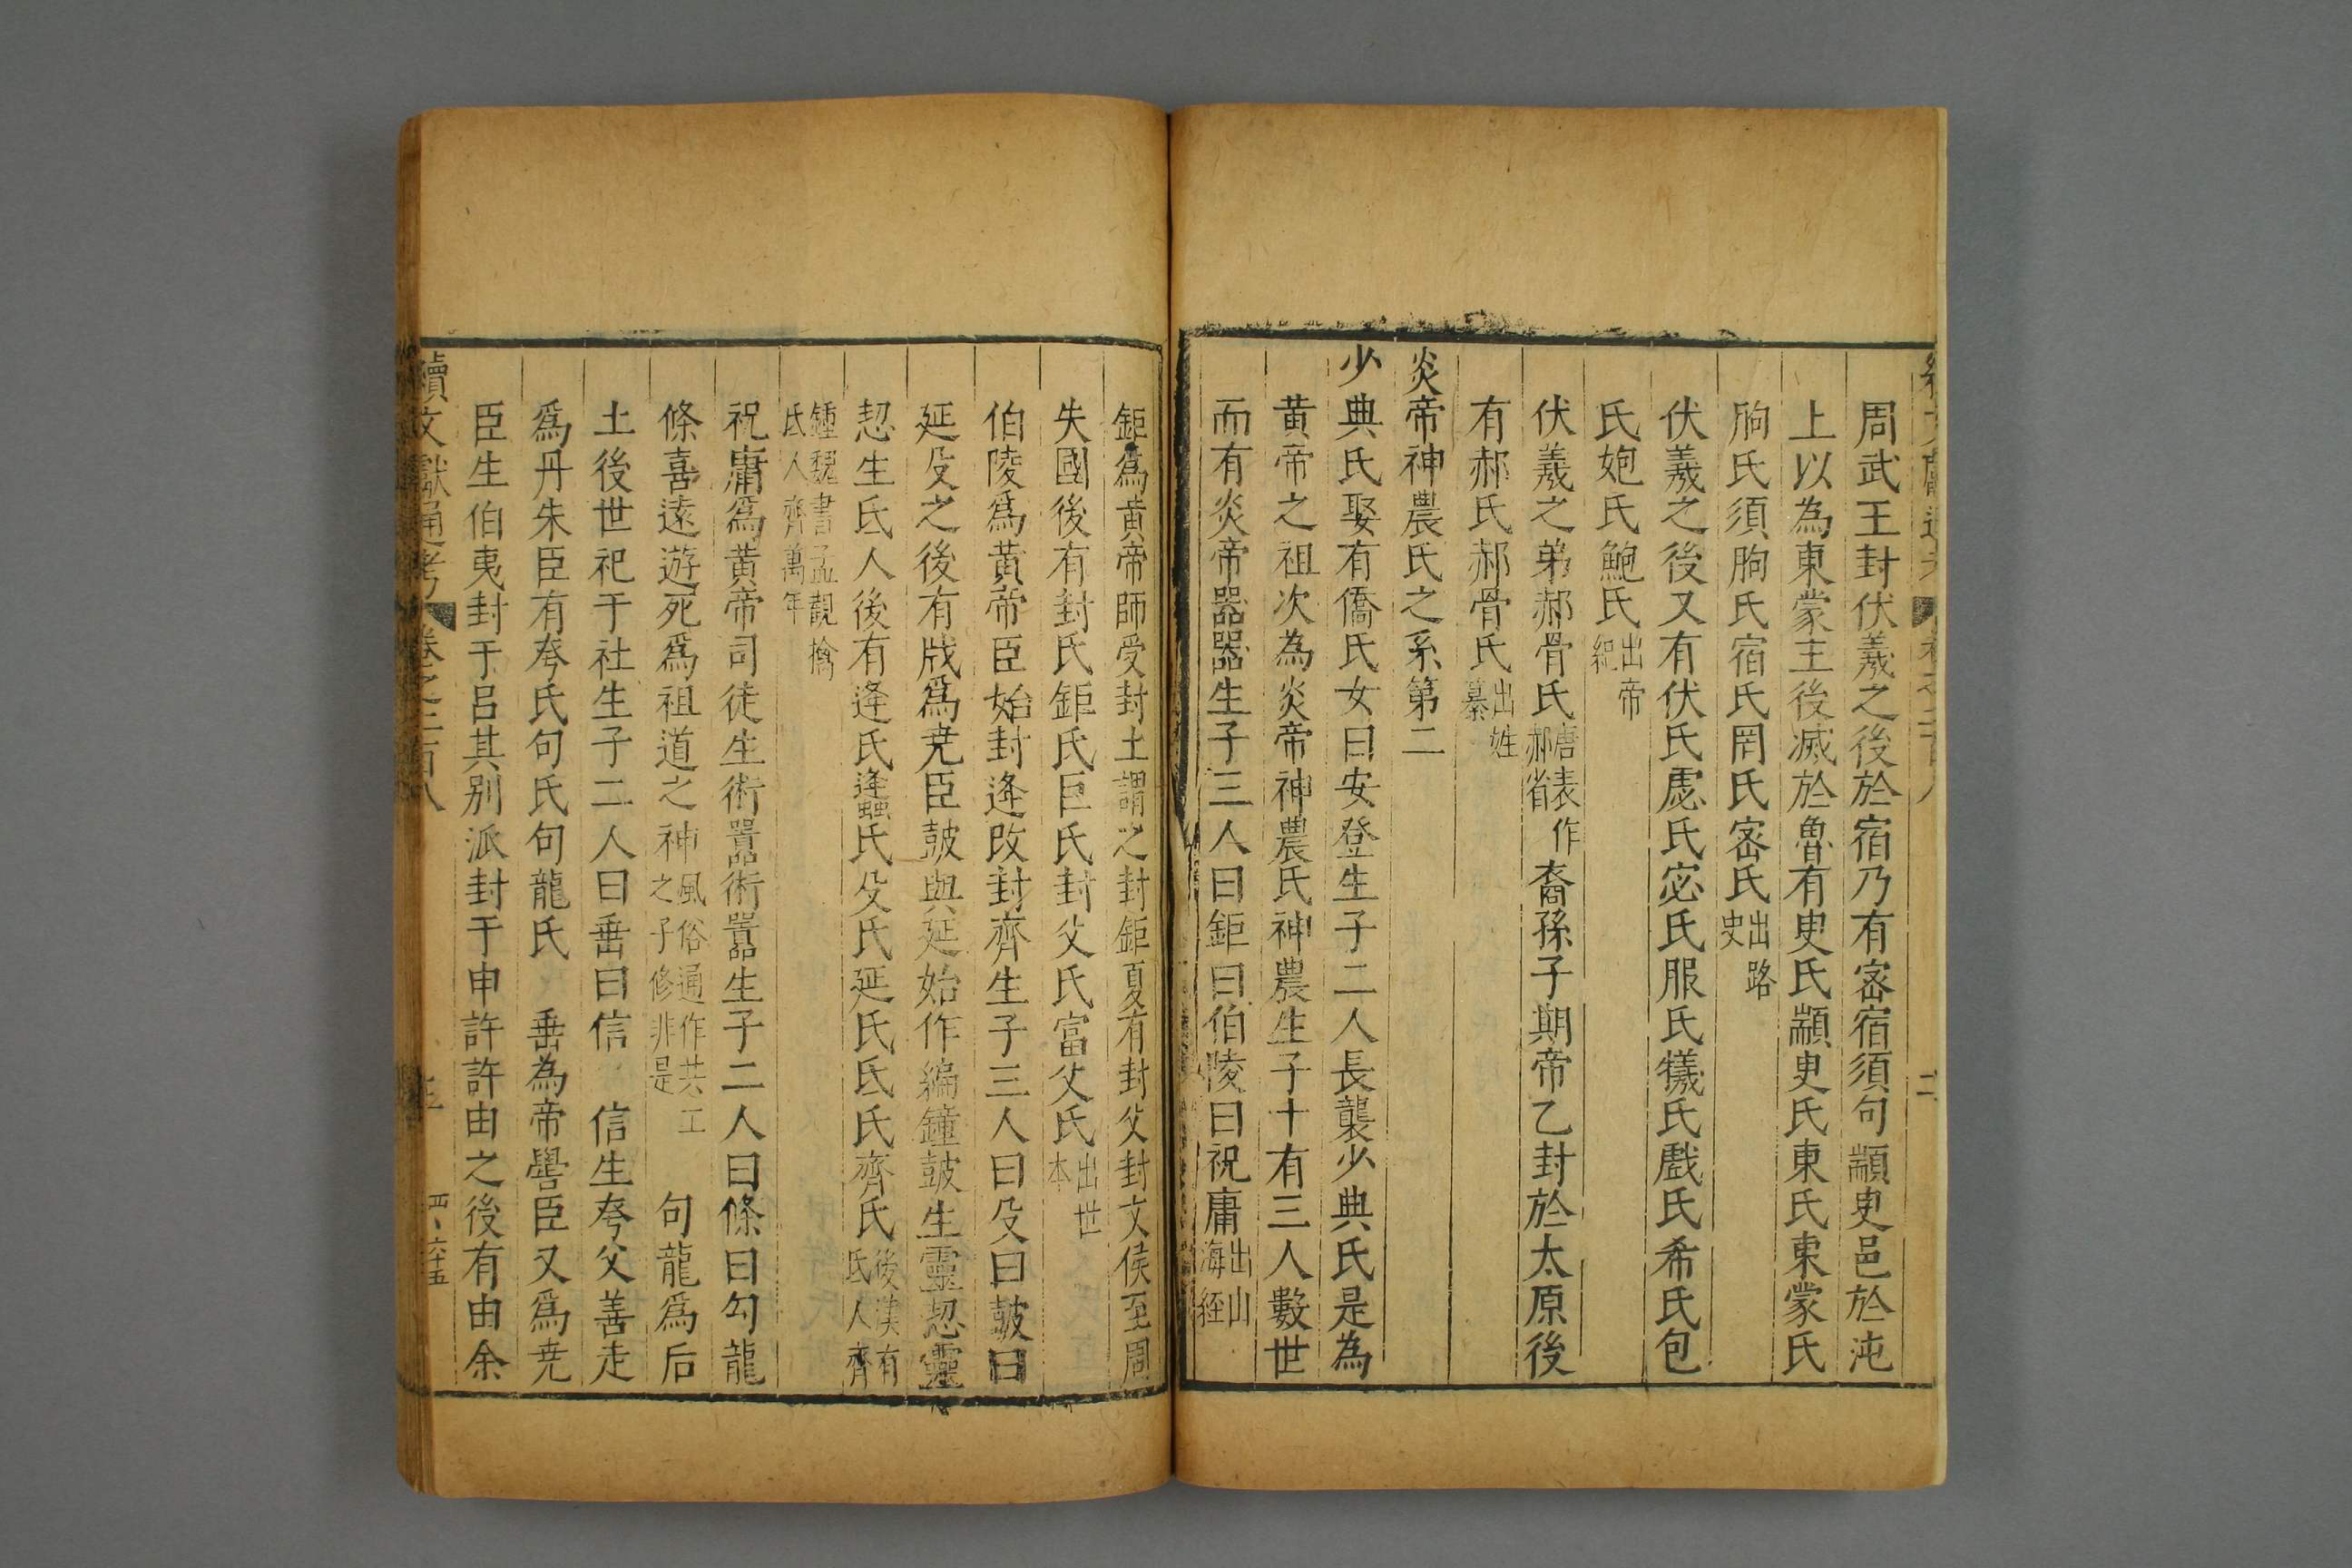 周武王封伏羲之後於宿乃有密宿須句顓臾邑於沌
上以為東蒙主後滅於魯有叟氏顓臾氏東氏東蒙氏
朐氏須朐氏宿氏罔氏密氏出路史
伏羲之後又有伏氏虙氏宓氏服氏犧氏戲氏希氏包
氏炮氏鮑氏出帝紀
伏羲之弟郝骨氏唐表作郝省裔孫子期帝乙封於太原後
有郝氏郝骨氏出姓纂
炎帝神農氏之系第二
少典氏娶有僑氏女曰安登生子二人長襲少典氏是為
黃帝之祖次為炎帝神農氏神農生子十有三人數世
而有炎帝器器生子三人曰鉅曰伯陵曰祝庸出山海經
鉅爲黃帝師受封土謂之封鉅夏有封父封文侯至周
失國後有封氏鉅氏巨氏封父氏富父氏出世本
伯陵爲黃帝臣始封逄改封齊生子三人曰殳曰鼓曰
延殳之後有戕爲尭臣鼓與延始作編鐘鼓生靈恝靈
恝生氐人後有逄氏逄蠭氏殳氏延氏氐氏齊氏後漢有氐人齊
鍾魏書孟觀擒氐人齊萬年
祝庸爲黃帝司徒生術囂術囂生子二人曰條曰勾龍
條喜遠遊死爲祖道之神風俗通作共工之子修非是 句龍爲后
土後世祀于社生子二人曰垂曰信 信生夸父善走
爲丹朱臣有夸氏句氏句龍氏 垂為帝嚳臣又爲尭
臣生伯夷封于呂其別派封于申許許由之後有由余
續文獻通考 卷之二百八 三